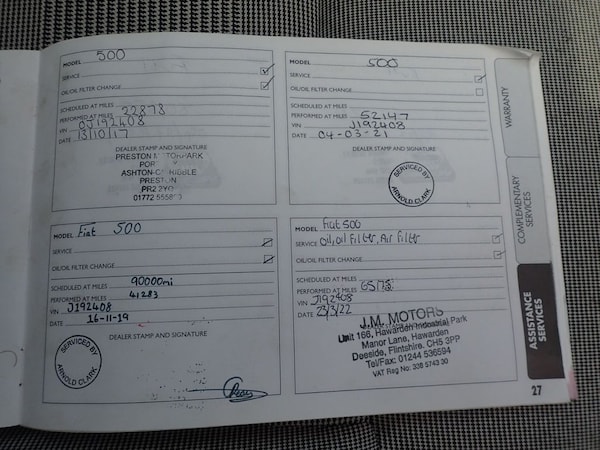 MODEL 500
SERVICE
OIL/OIL FILTER CHANGE
SCHEDULED AT MILES
PERFORMED AT MILES 22873
VIN 0J192408
DATE 13/10/17
DEALER STAMP AND SIGNATURE
PRESTON MOTORPARK
ASHTON-ON-RIBBLE
PRESTON
PR2 2YQ
01772
MODEL 500
SERVICE
OIL/OIL FILTER CHANGE
SCHEDULED AT MILES
PERFORMED AT MILES 52147
VIN J192408
DATE 04-03-21
DEALER STAMP AND SIGNATURE
SERVICED BY
ARNOLD CLARK
MODEL Fiat 500
SERVICE
OIL/OIL FILTER CHANGE
SCHEDULED AT MILES 90000mi
PERFORMED AT MILES 41283
VIN J192408
DATE 16-11-19
DEALER STAMP AND SIGNATURE
SERVICED BY
ARNOLD CLARK
MODEL Fiat 500
SERVICE Oil, oil filter, Air filter
OIL/OIL FILTER CHANGE
SCHEDULED AT MILES
PERFORMED AT MILES
VIN J192408
DATE 23/3/22
J.M. MOTORS
Unit 166, Hawarden Industrial Park
Manor Lane, Hawarden
Deeside, Flintshire. CH5 3PP
Tel/Fax: 01244 536594
VAT Reg No: 338 5743 30
WARRANTY
COMPLEMENTARY
SERVICES
ASSISTANCE
SERVICES
27